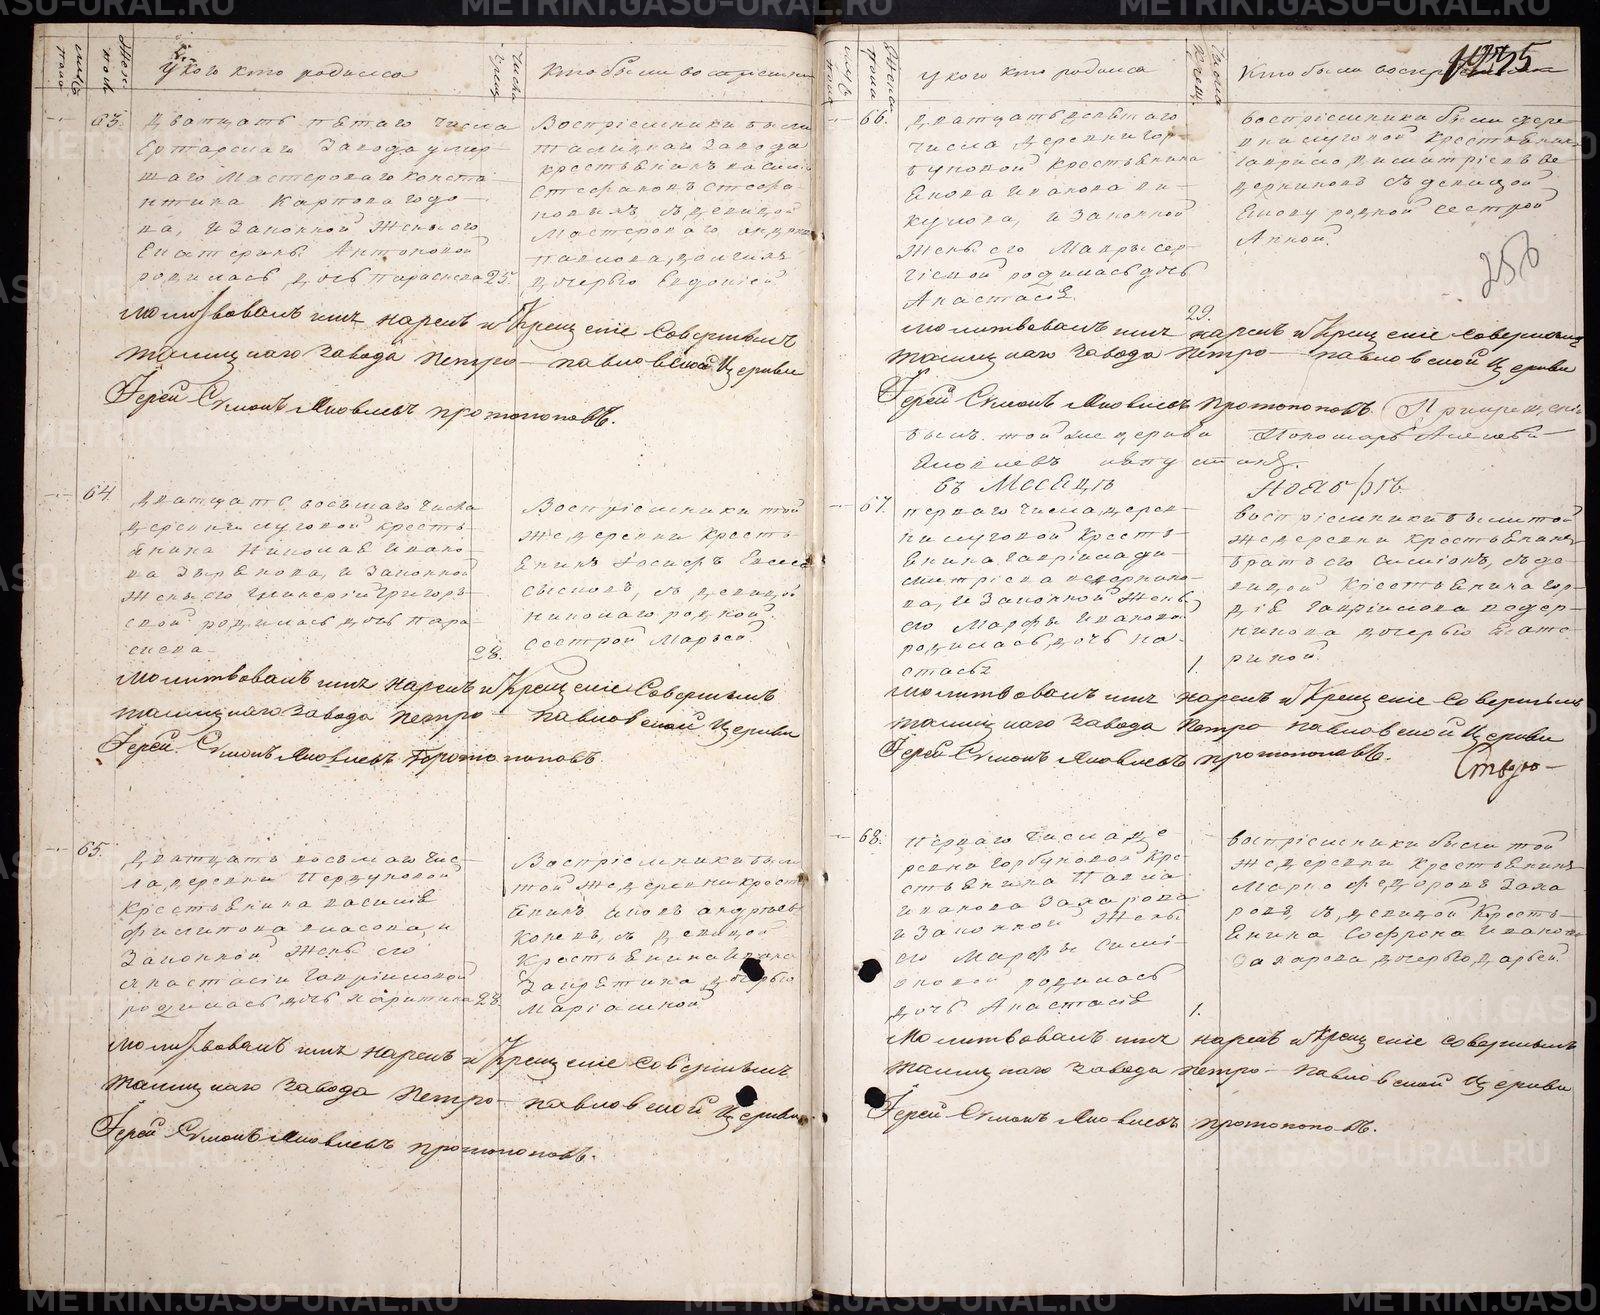 У кого кто родился
Кто были восприемники
63.
Дватцать пятаго числа
Ертарскаго Завода умер-
шаго Мастероваго Конста-
нтина Карпова Годо-
ва, и Законной Жены его
Екатерины Антоновой
родилась дочь Параскева 25.
Восприемники были
Талицкаго Завода
крестьянинъ Василий
Стефановъ Стефа-
новыхъ, съ девицой
Мастероваго Андрея
Павлова
дочерью Евдокией
Молитвовалъ имя нарекъ и Крещение Совершилъ
Талицкаго Завода Петро-павловской Церкви
Иерей Симонъ Яковлевъ Протопоповъ.
64.
Дватцать восьмаго числа
деревни Луговой кресть-
янина Николая Ивано-
ва Зырянова, и Законной
Жены его Гликерии Григорь-
евой родилась дочь Пара-
скева 28.
Восприемники той
же деревни кресть-
янинъ Иосифъ
съ девицой
Николаю родной
сестрой Марьей
Молитвовалъ имя нарекъ и Крещение Совершилъ
Талицкаго Завода Петро-павловской Церкви
Иерей Симонъ Яковлевъ Протопоповъ.
65.
Дватцать восьмаго чис-
ла деревни Первуновой
Крестьянина Василия
Филипова Власова, и
Законной Жены его
Анастасии Гаврииловой
родилась дочь Харитина 28.
Восприемники были
той же деревни крест-
янинъ Яковъ Андреевъ
Коневъ, съ девицой
Крестьянина Ивана
дочерью
Мариамной
Молитвовалъ имя нарекъ и Крещение Совершилъ
Талицкаго Завода Петро-павловской Церкви
Иерей Симонъ Яковлевъ Протопоповъ.
У кого кто родился
Кто были восприемники
66.
Дватцать девятаго
числа Деревни Гор-
буновой Крестьянина
Якова Иванова Ви-
кулова, и Законной
Жены его Мавры Сер-
гиевой родилась дочь
Анастасия 29.
Восприемники были дере-
вни Луговой Крестьянинъ
Гаврило Димитриевъ Ве-
дерниковъ съ девицой
Якову родной сестрой
Анной
256
Молитвовалъ имя нарекъ и Крещение Совершилъ
Талицкаго Завода Петро-павловской Церкви
Иерей Симонъ Яковлевъ Протопоповъ. При крещении
былъ той же церкви Пономарь Алексей
Яковлевъ
въ Месяцъ Ноябрь
67.
перваго числа дерев-
ни Луговой Кресть-
янина Гавриила Ди-
митриева Ведернико-
ва, и Законной Жены
его Марфы Ивановой
родилась дочь На-
стасья 1.
Восприемники были той
же деревни Крестьянинъ
братъ его Симионъ, съ де-
вицой Крестьянина Гор-
дия Гавриилова Ведер-
никова дочерью Екате-
риной
Молитвовалъ имя нарекъ и Крещение Совершилъ
Талицкаго Завода Петро-павловской Церкви
Иерей Симонъ Яковлевъ Протопоповъ.
68.
Перваго числа де-
ревни Горбуновой Кре-
стьянина Павла
Иванова Захарова
и Законной Жены
его Марфы Сими-
оновой родилась
дочь Анастасия 1.
Восприемники были той
же деревни Крестьянинъ
Марко Федоровъ Заха-
ровъ, съ девицой Кресть-
янина Софрона Иванова
Захарова дочерью Дарьей
Молитвовалъ имя нарекъ и Крещение Совершилъ
Талицкаго Завода Петро-павловской Церкви
Иерей Симонъ Яковлевъ Протопоповъ.
METRIKI.GASO-URAL.RU